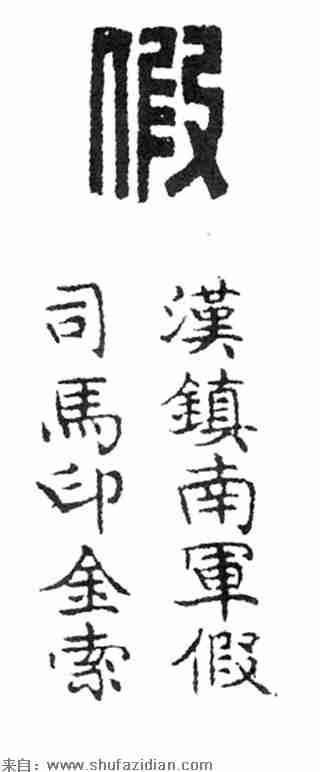 假
漢鎮南軍假
司馬印金索
来自：www.shufazidian.com